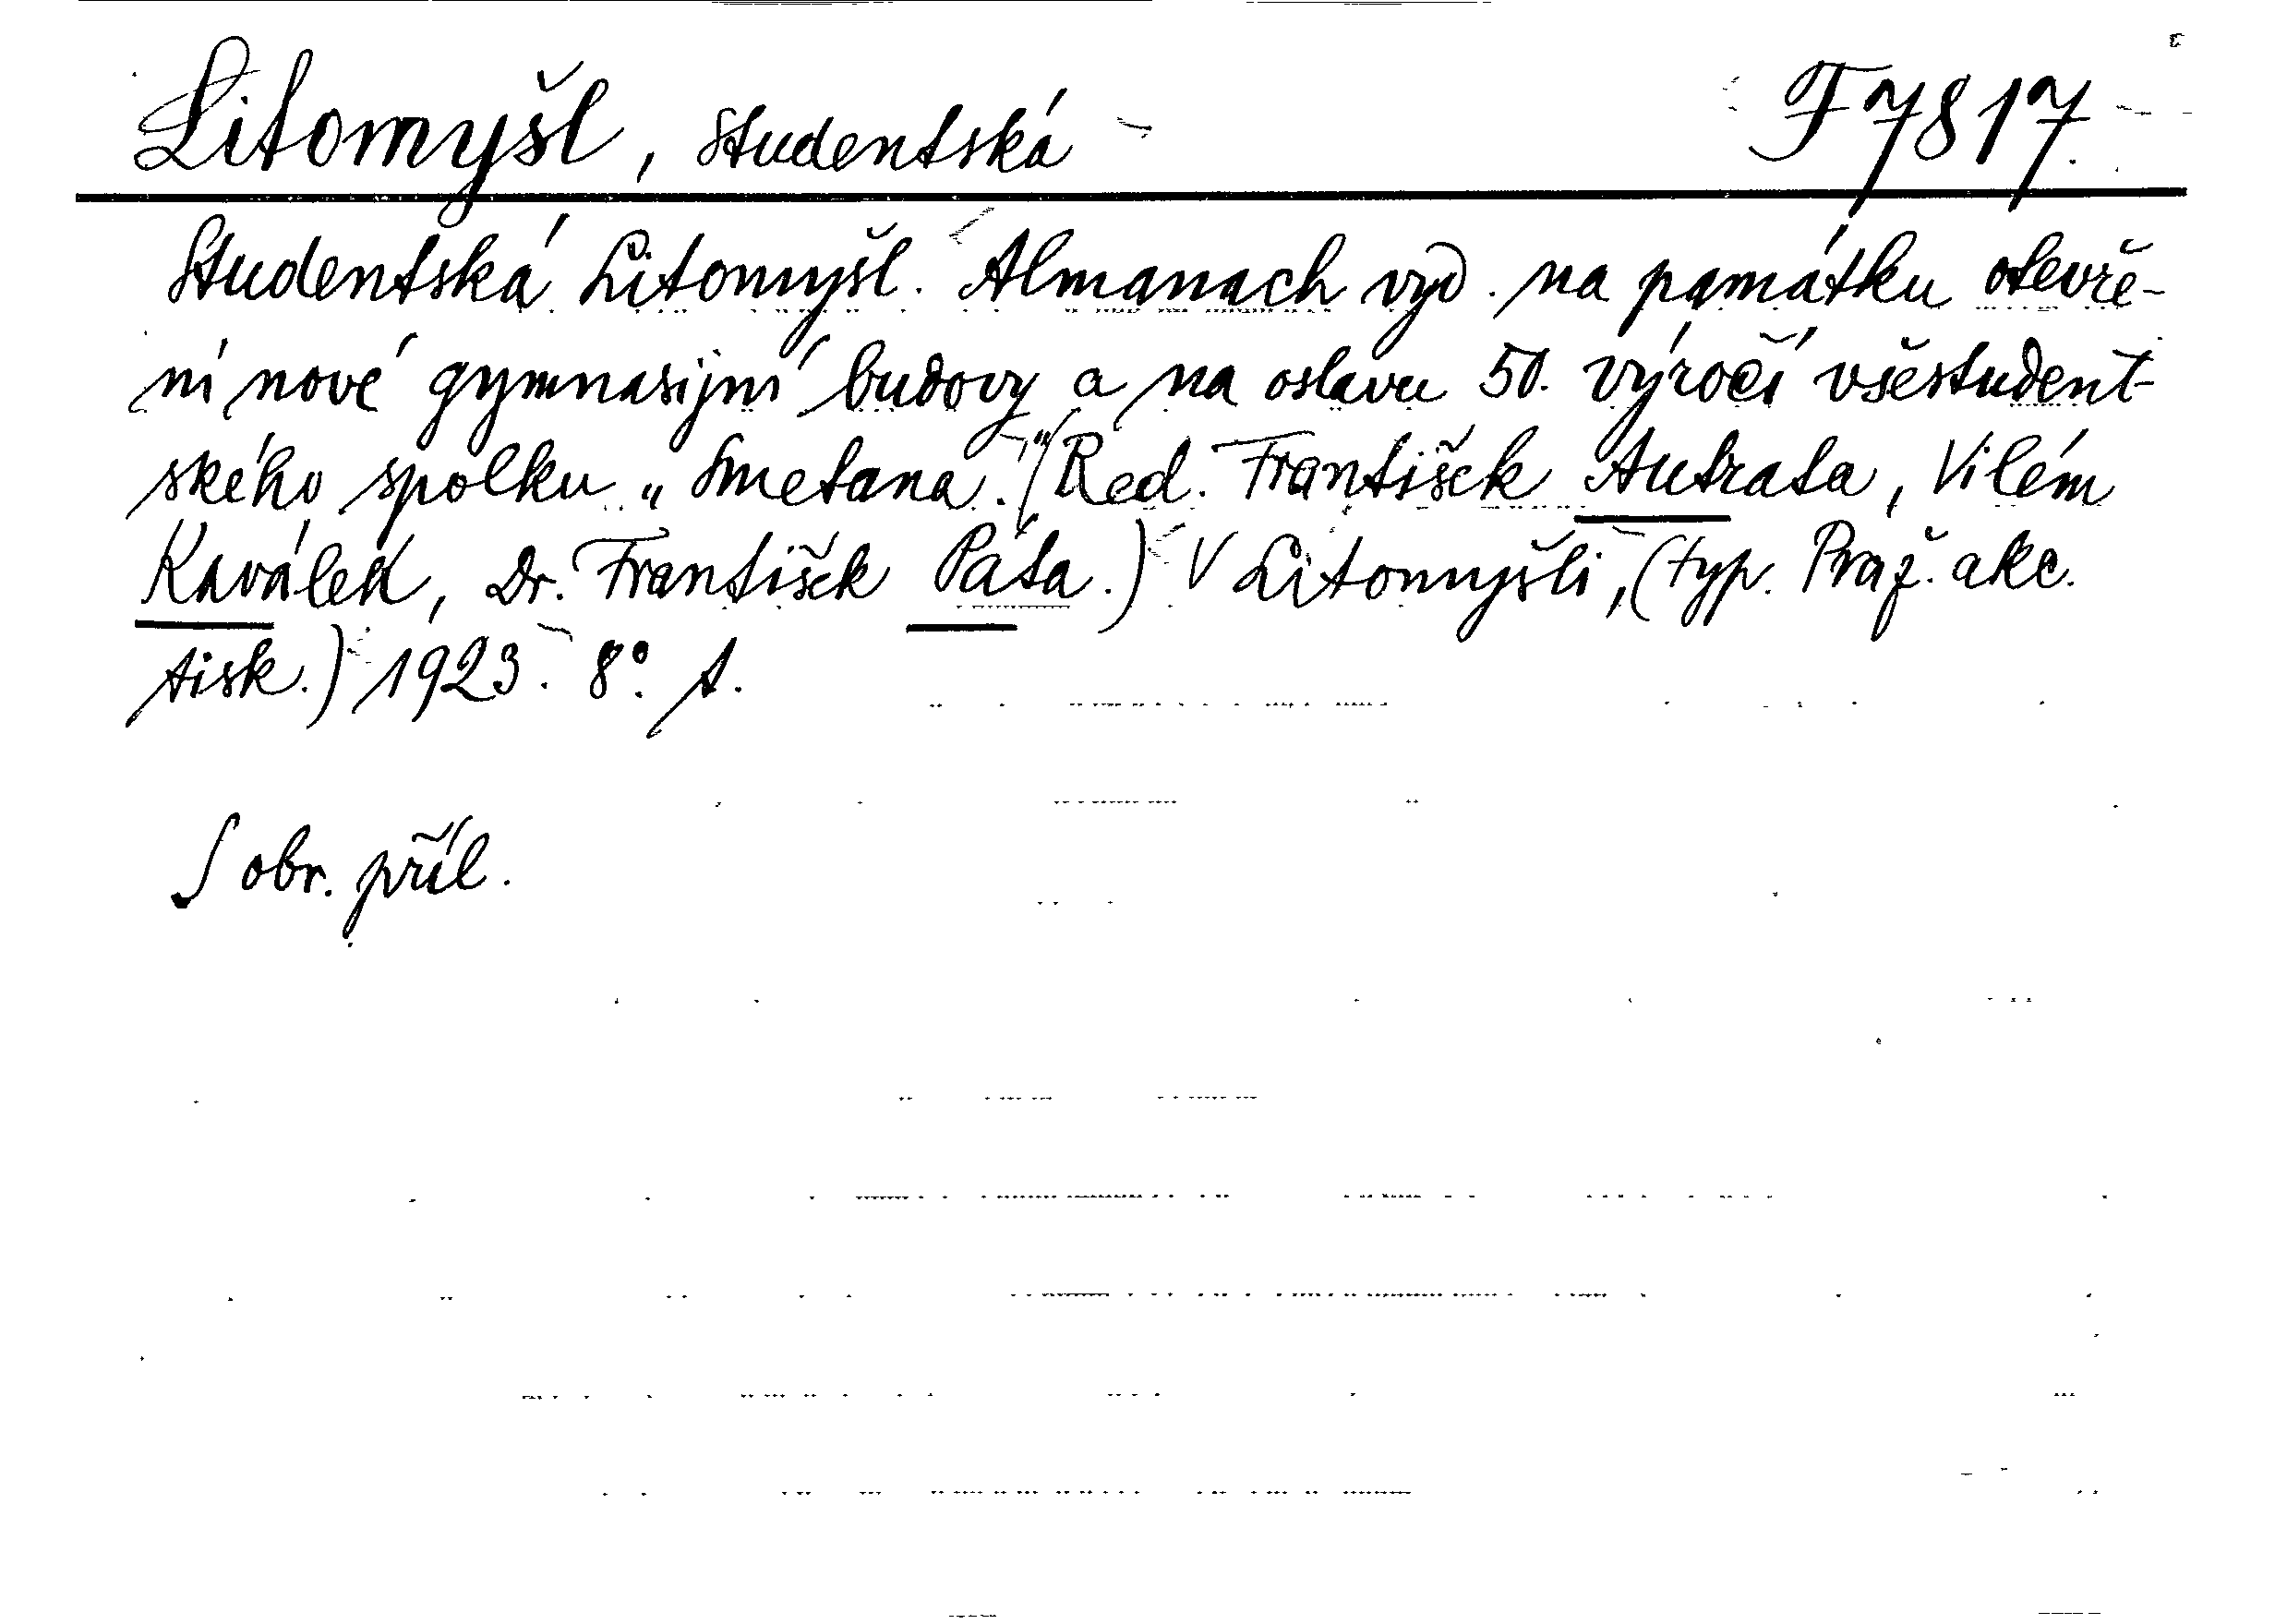 Litomyšl, Studentská F 7817.
Studentská Litomyšl. Almanach vyd. na památku otevře-
ní nové gymnasijní budovy a na oslavu 50. výročí všestudent-
ského spolku „Smetana". (Red. František Autrata, Vilém
Kaválek, Dr. František Páta.) V Litomyšli, (typ. Praž. akc.
tisk.) 1923. 8°. s.
S obr. příl.